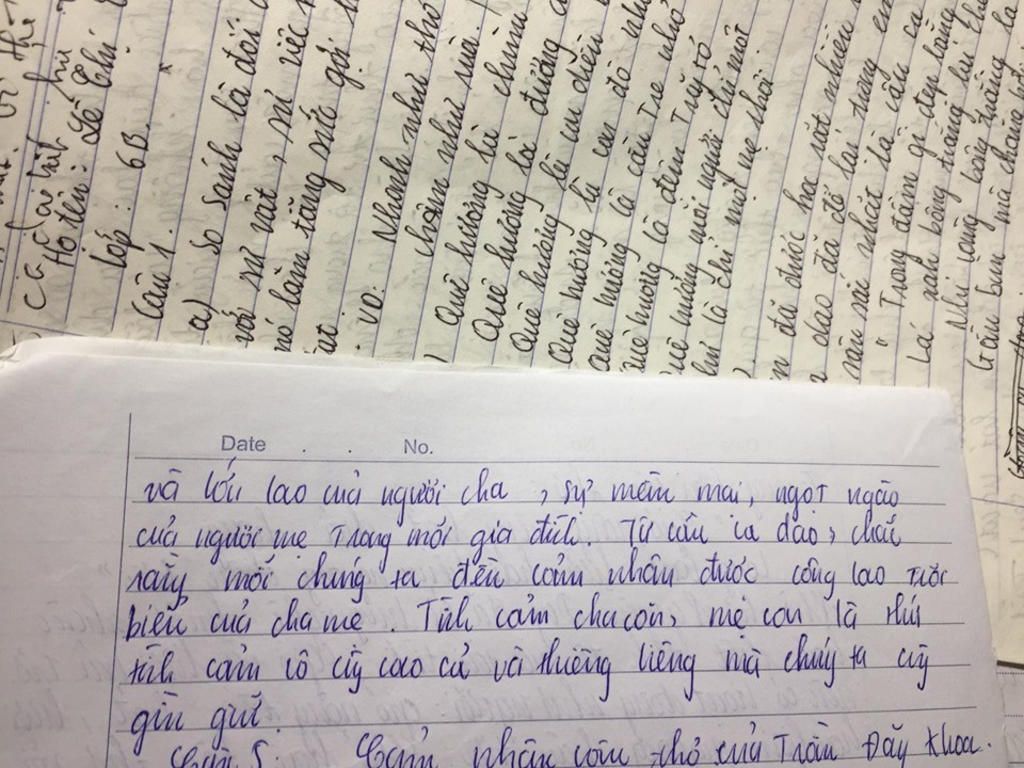 Họ tên: Lê Chí
lớp: 6B.
Câu 1.
a) So sánh là đối
với sự vật, sự việc
nó làm tăng sức gợi
VD: Nhanh như thỏ
chậm như rùa.
Quê hương là chùm
Quê hương là đường
Quê hương là con diều
Quê hương là con đò nhỏ
Quê hương là cầu tre nhỏ
Quê hương là đêm trăng tỏ
Quê hương mỗi người chỉ một
Như là chỉ một mẹ thôi
đã được học rất nhiều
dao đã để lại trong em
sâu sắc nhất là câu ca
"Trong đầm gì đẹp bằng
Lá xanh bông trắng lại
Nhị vàng bông trắng lá
Gần bùn mà chẳng hôi
Date . . No.
và lớn lao của người cha, sự mềm mại, ngọt ngào
của người mẹ trong mỗi gia đình. Từ câu ca dao, chắc
rằng mỗi chúng ta đều cảm nhận được công lao trời
biển của cha mẹ. Tình cảm cha con, mẹ con là thứ
tình cảm vô cùng cao cả và thiêng liêng mà chúng ta cùng
gìn giữ.
Câu 5: Cảm nhận câu thơ của Trần Đăng Khoa.